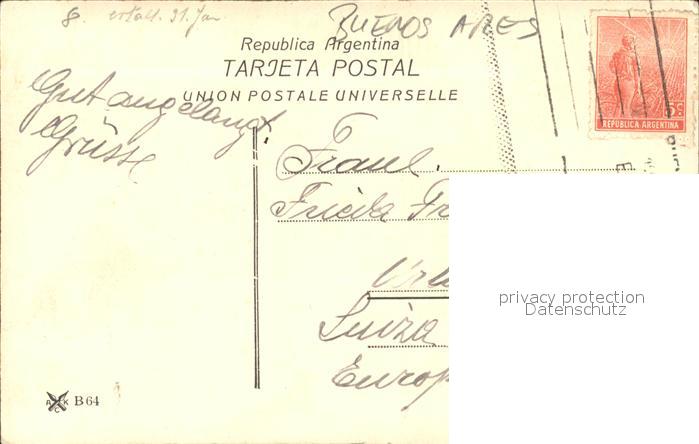 8. erhalt. 31. Jan
BUENOS AIRES
Republica Argentina
TARJETA POSTAL
UNION POSTALE UNIVERSELLE
Gut angelangt.
Grüsse
Fraul.
Frieda
Suiza
Europ
5c
REPUBLICA ARGENTINA
privacy protection
Datenschutz
B 64